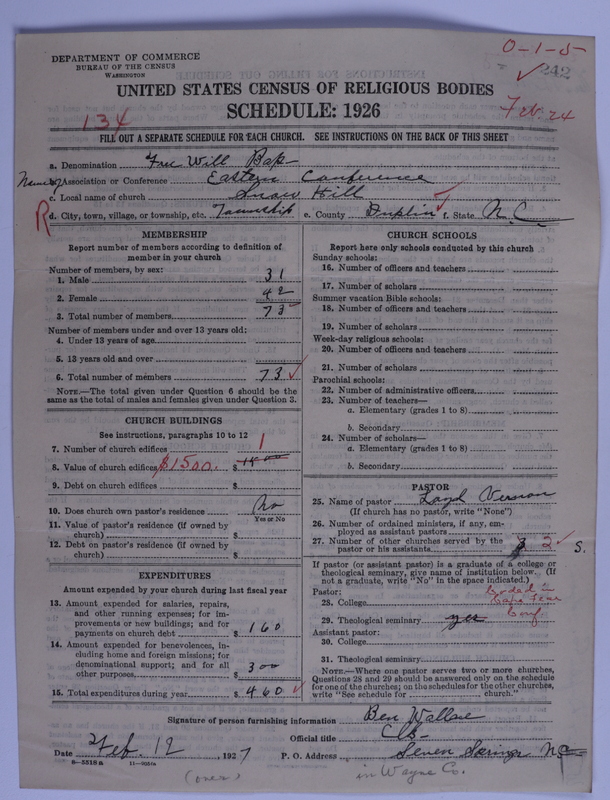 DEPARTMENT OF COMMERCE
BUREAU OF THE CENSUS
WASHINGTON
0-1-5
242
UNITED STATES CENSUS OF RELIGIOUS BODIES
SCHEDULE: 1926
134
Feb. 24
FILL OUT A SEPARATE SCHEDULE FOR EACH CHURCH. SEE INSTRUCTIONS ON THE BACK OF THIS SHEET
a. Denomination Free Will Bap
Name of
b. Association or Conference Eastern Conference
c. Local name of church Snow Hill
R
d. City, town, village, or township, etc. Township e. County Duplin f. State N.C.
MEMBERSHIP
Report number of members according to definition of
member in your church
Number of members, by sex:
1. Male 31
2. Female 42
3. Total number of members 73
Number of members under and over 13 years old:
4. Under 13 years of age
5. 13 years old and over
6. Total number of members 73
NOTE.—The total given under Question 6 should be the
same as the total of males and females given under Question 3.
CHURCH BUILDINGS
See instructions, paragraphs 10 to 12
7. Number of church edifices 1
8. Value of church edifices $1500. $ 1500
9. Debt on church edifices $
10. Does church own pastor's residence No
Yes or No
11. Value of pastor's residence (if owned by
church) $
12. Debt on pastor's residence (if owned by
church) $
EXPENDITURES
Amount expended by your church during last fiscal year
13. Amount expended for salaries, repairs,
and other running expenses; for im-
provements or new buildings; and for
payments on church debt $ 160
14. Amount expended for benevolences, in-
cluding home and foreign missions; for
denominational support; and for all
other purposes $ 300
15. Total expenditures during year $ 460
CHURCH SCHOOLS
Report here only schools conducted by this church
Sunday schools:
16. Number of officers and teachers
17. Number of scholars
Summer vacation Bible schools:
18. Number of officers and teachers
19. Number of scholars
Week-day religious schools:
20. Number of officers and teachers
21. Number of scholars
Parochial schools:
22. Number of administrative officers
23. Number of teachers—
a. Elementary (grades 1 to 8)
b. Secondary
24. Number of scholars—
a. Elementary (grades 1 to 8)
b. Secondary
PASTOR
25. Name of pastor Loyd Vernon
(If church has no pastor, write "None")
26. Number of ordained ministers, if any, em-
ployed as assistant pastors
27. Number of other churches served by the
pastor or his assistants 3 2 S.
If pastor (or assistant pastor) is a graduate of a college or
theological seminary, give name of institution below. (If
not a graduate, write "No" in the space indicated.)
Pastor:
28. College
in Cape Fear Conf.
29. Theological seminary yes
Assistant pastor:
30. College
31. Theological seminary
NOTE.—Where one pastor serves two or more churches,
Questions 28 and 29 should be answered only on the schedule
for one of the churches; on the schedules for the other churches,
write "See schedule for church."
Signature of person furnishing information Ben Wallace
Official title
Date Feb. 12, 1927 P. O. Address Seven Springs N.C.
8-5518a
(over)
in Wayne Co.